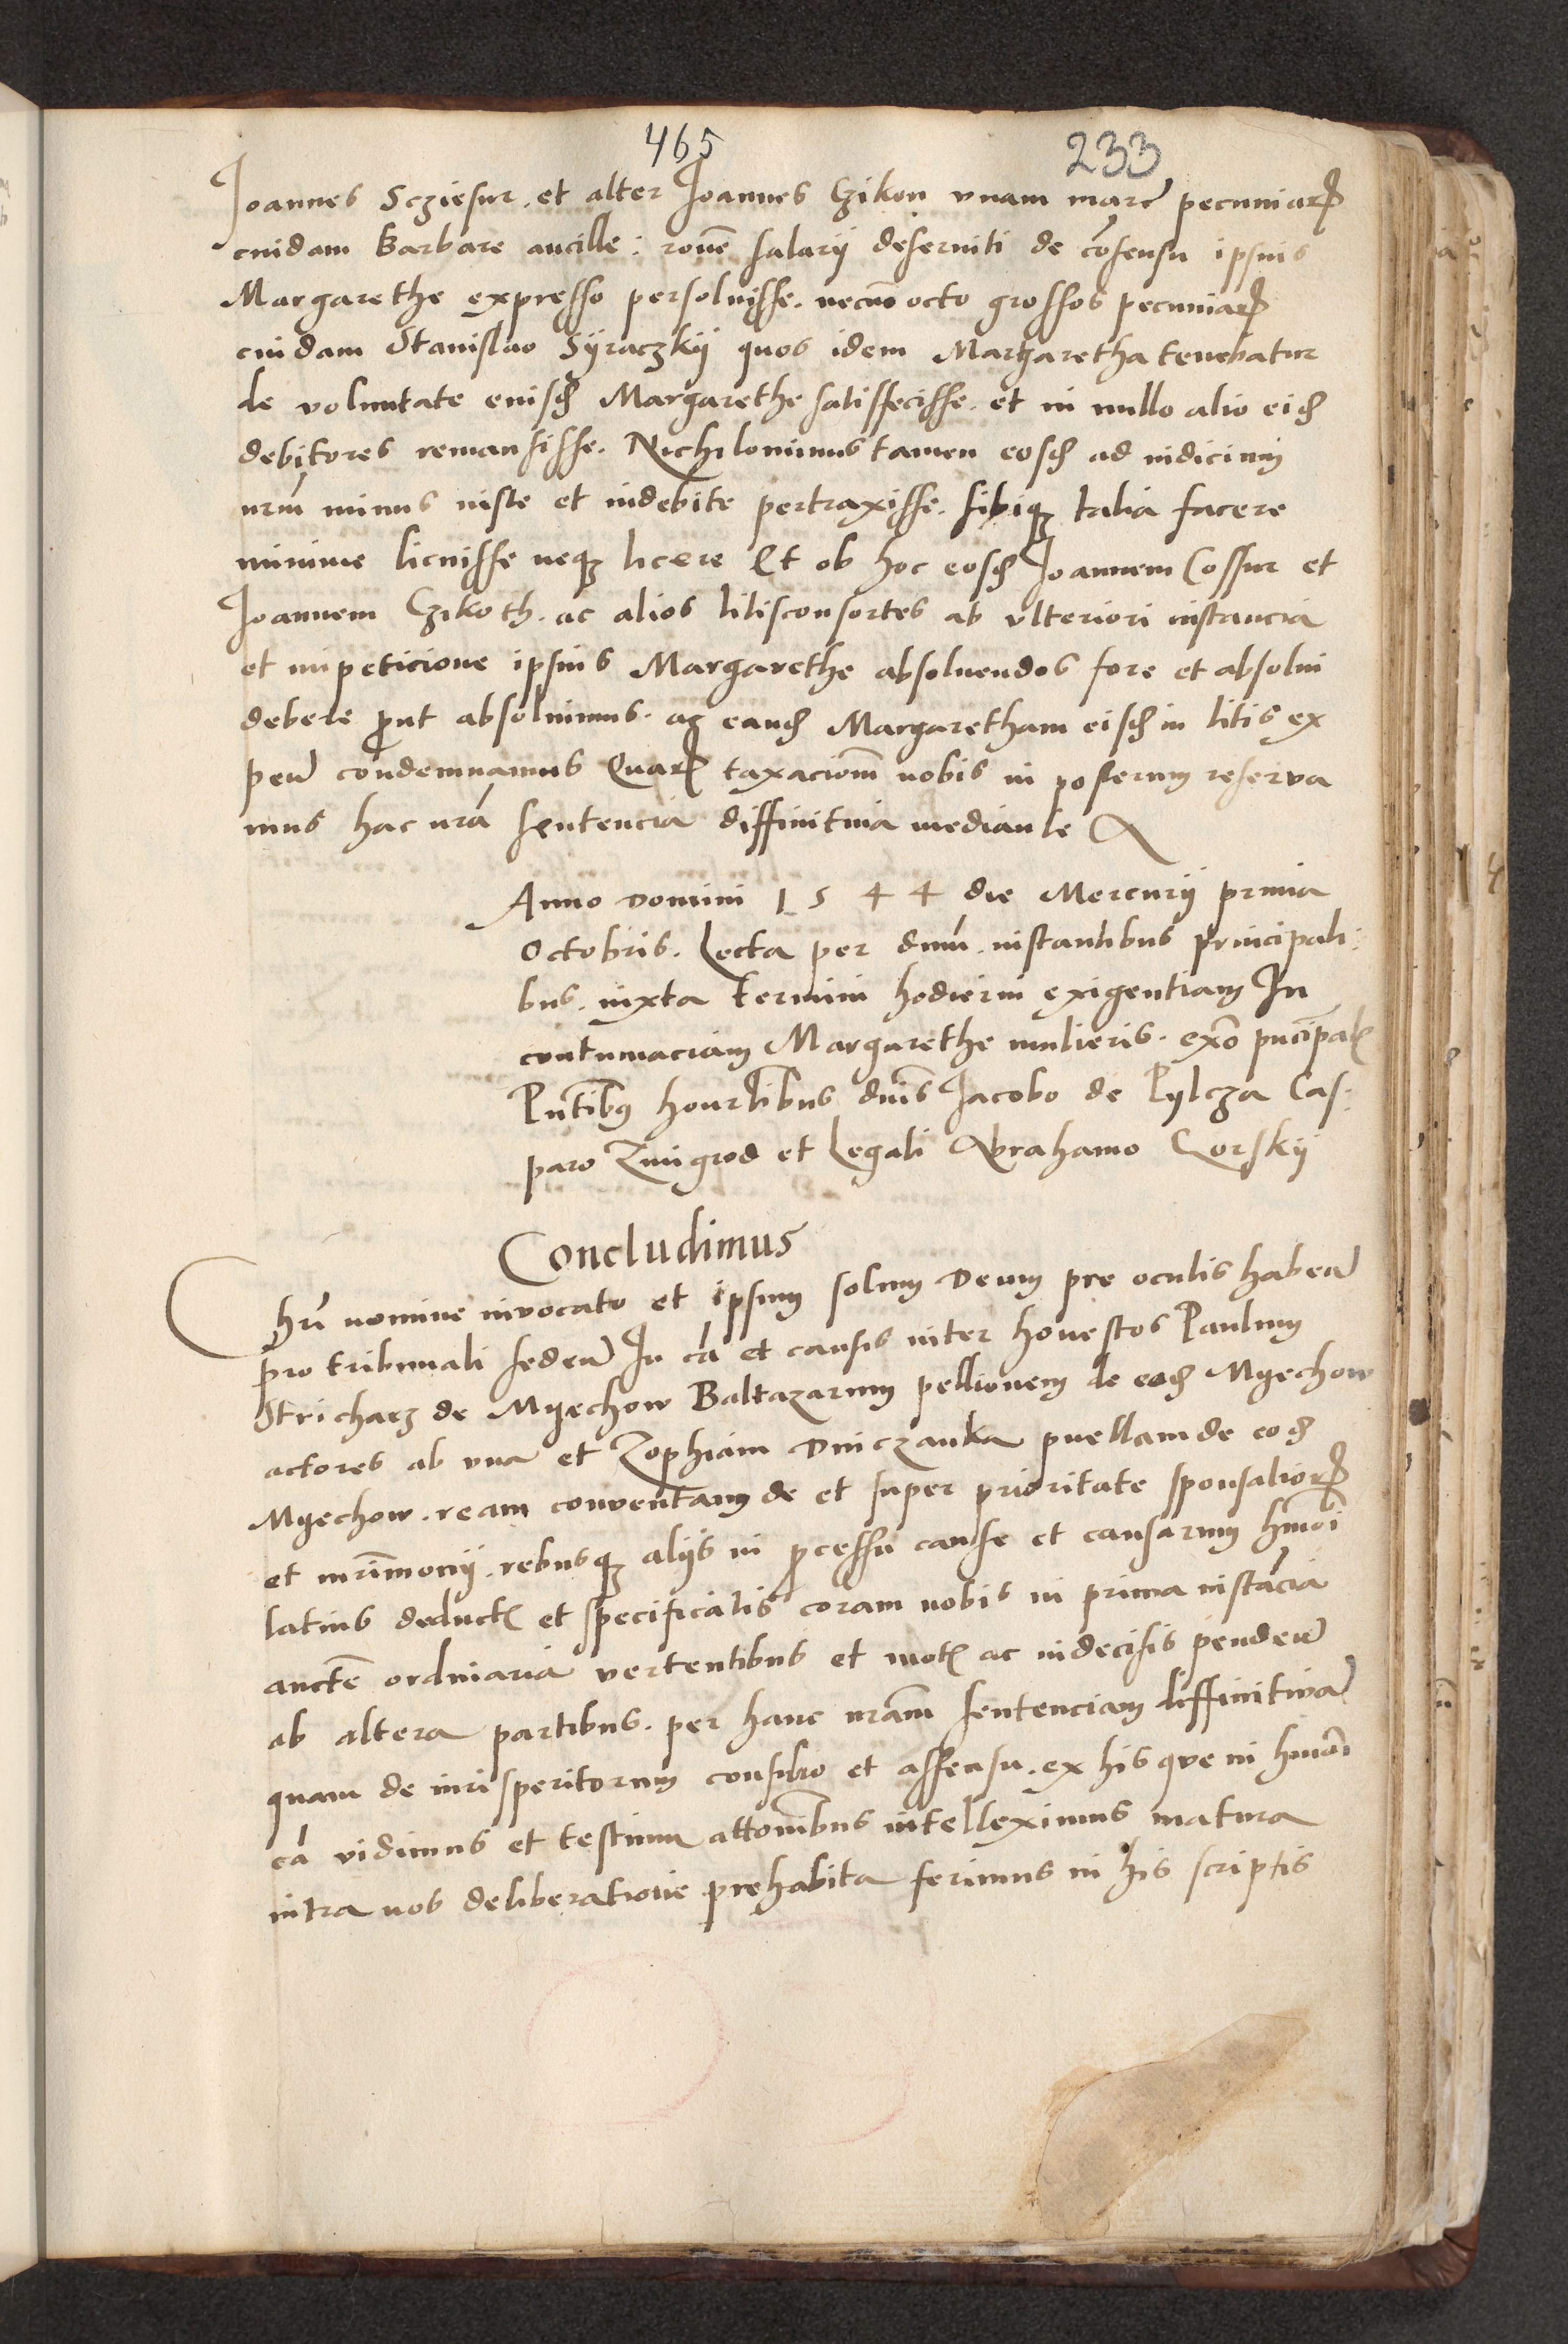 465 233
Joannes Scziesur. et alter Joannes Czikon vnam marc̃ pecuniarꝝ
cuidam Barbare ancille: rone̅ salarij deseruiti de co̅sensu ipsius
Margarethe expresso persoluisse. necno̅ octo grossos pecuniarꝝ
cuidam Stanislao Syraczkij quos idem Margaretha tenebatur
de voluntate eiusd Margarethe satisfecisse. et in nullo alio eid
debitores remansisse. Nichilominus tamen eosd ad iudicium
nrm̅ minus iuste et indebite pertraxisse. sibiqꝫ talia facere
minime licuisse neqꝫ licere Et ob hoc eosd Joannem Cossur et
Joannem Czikoth. ac alios litisconsortes ab vlteriori instancia
et impeticione ipsius Margarethe absoluendos fore et absolui
debere ꝓut absoluimus. ac eand Margaretham eisd in litis ex
pen̅ condemnamus Quarꝝ taxaciom̅ nobis in posterum reserva
mus hac nra̅ sentencia diffinitiua mediante
Anno Domini 1544 die Mercurij prima
Octobris. Lecta per dnm̅. instantibus principali:
bus. iuxta termini hodierni exigentiam In
contumaciam Margarethe mulieris. exo̅ pncipal̅
Pntibꝫ hon̅rlibus dnis̅ Jacobo de Pylcza Cas:
paro Zmigrod et Legali Abrahamo Gorskij
Concludimus
Chri̅ nomine invocato et ipsum solum Deum pre oculis haben̅
pro tribunali seden̅ In ca̅ et causis inter honestos Paulum
Stricharz de Myechow Baltazarum pellionem de eod Myechow
actores ab vna et Zophiam Dniczanka puellam de eod
Myechow. ream conventam de et super prioritate sponsaliorꝝ
et mrim̅monij. rebusqꝫ alijs in ꝓcessu cause et causarum hm̅oi
latius deduct̅ et specificatis coram nobis in prima insta̅cia
aucte̅ ordinaria vertentibus et mot̅ ac indecisis penden̅
ab altera partibus. per hanc nram̅ sentenciam diffinitiva̅
quam de iurisperitorum consilio et assensu. ex his que in hm̅oi
ca̅ vidimus et testium attonibus̅ intelleximus matura
intra nos deliberatione prehabita ferimus in his scriptis